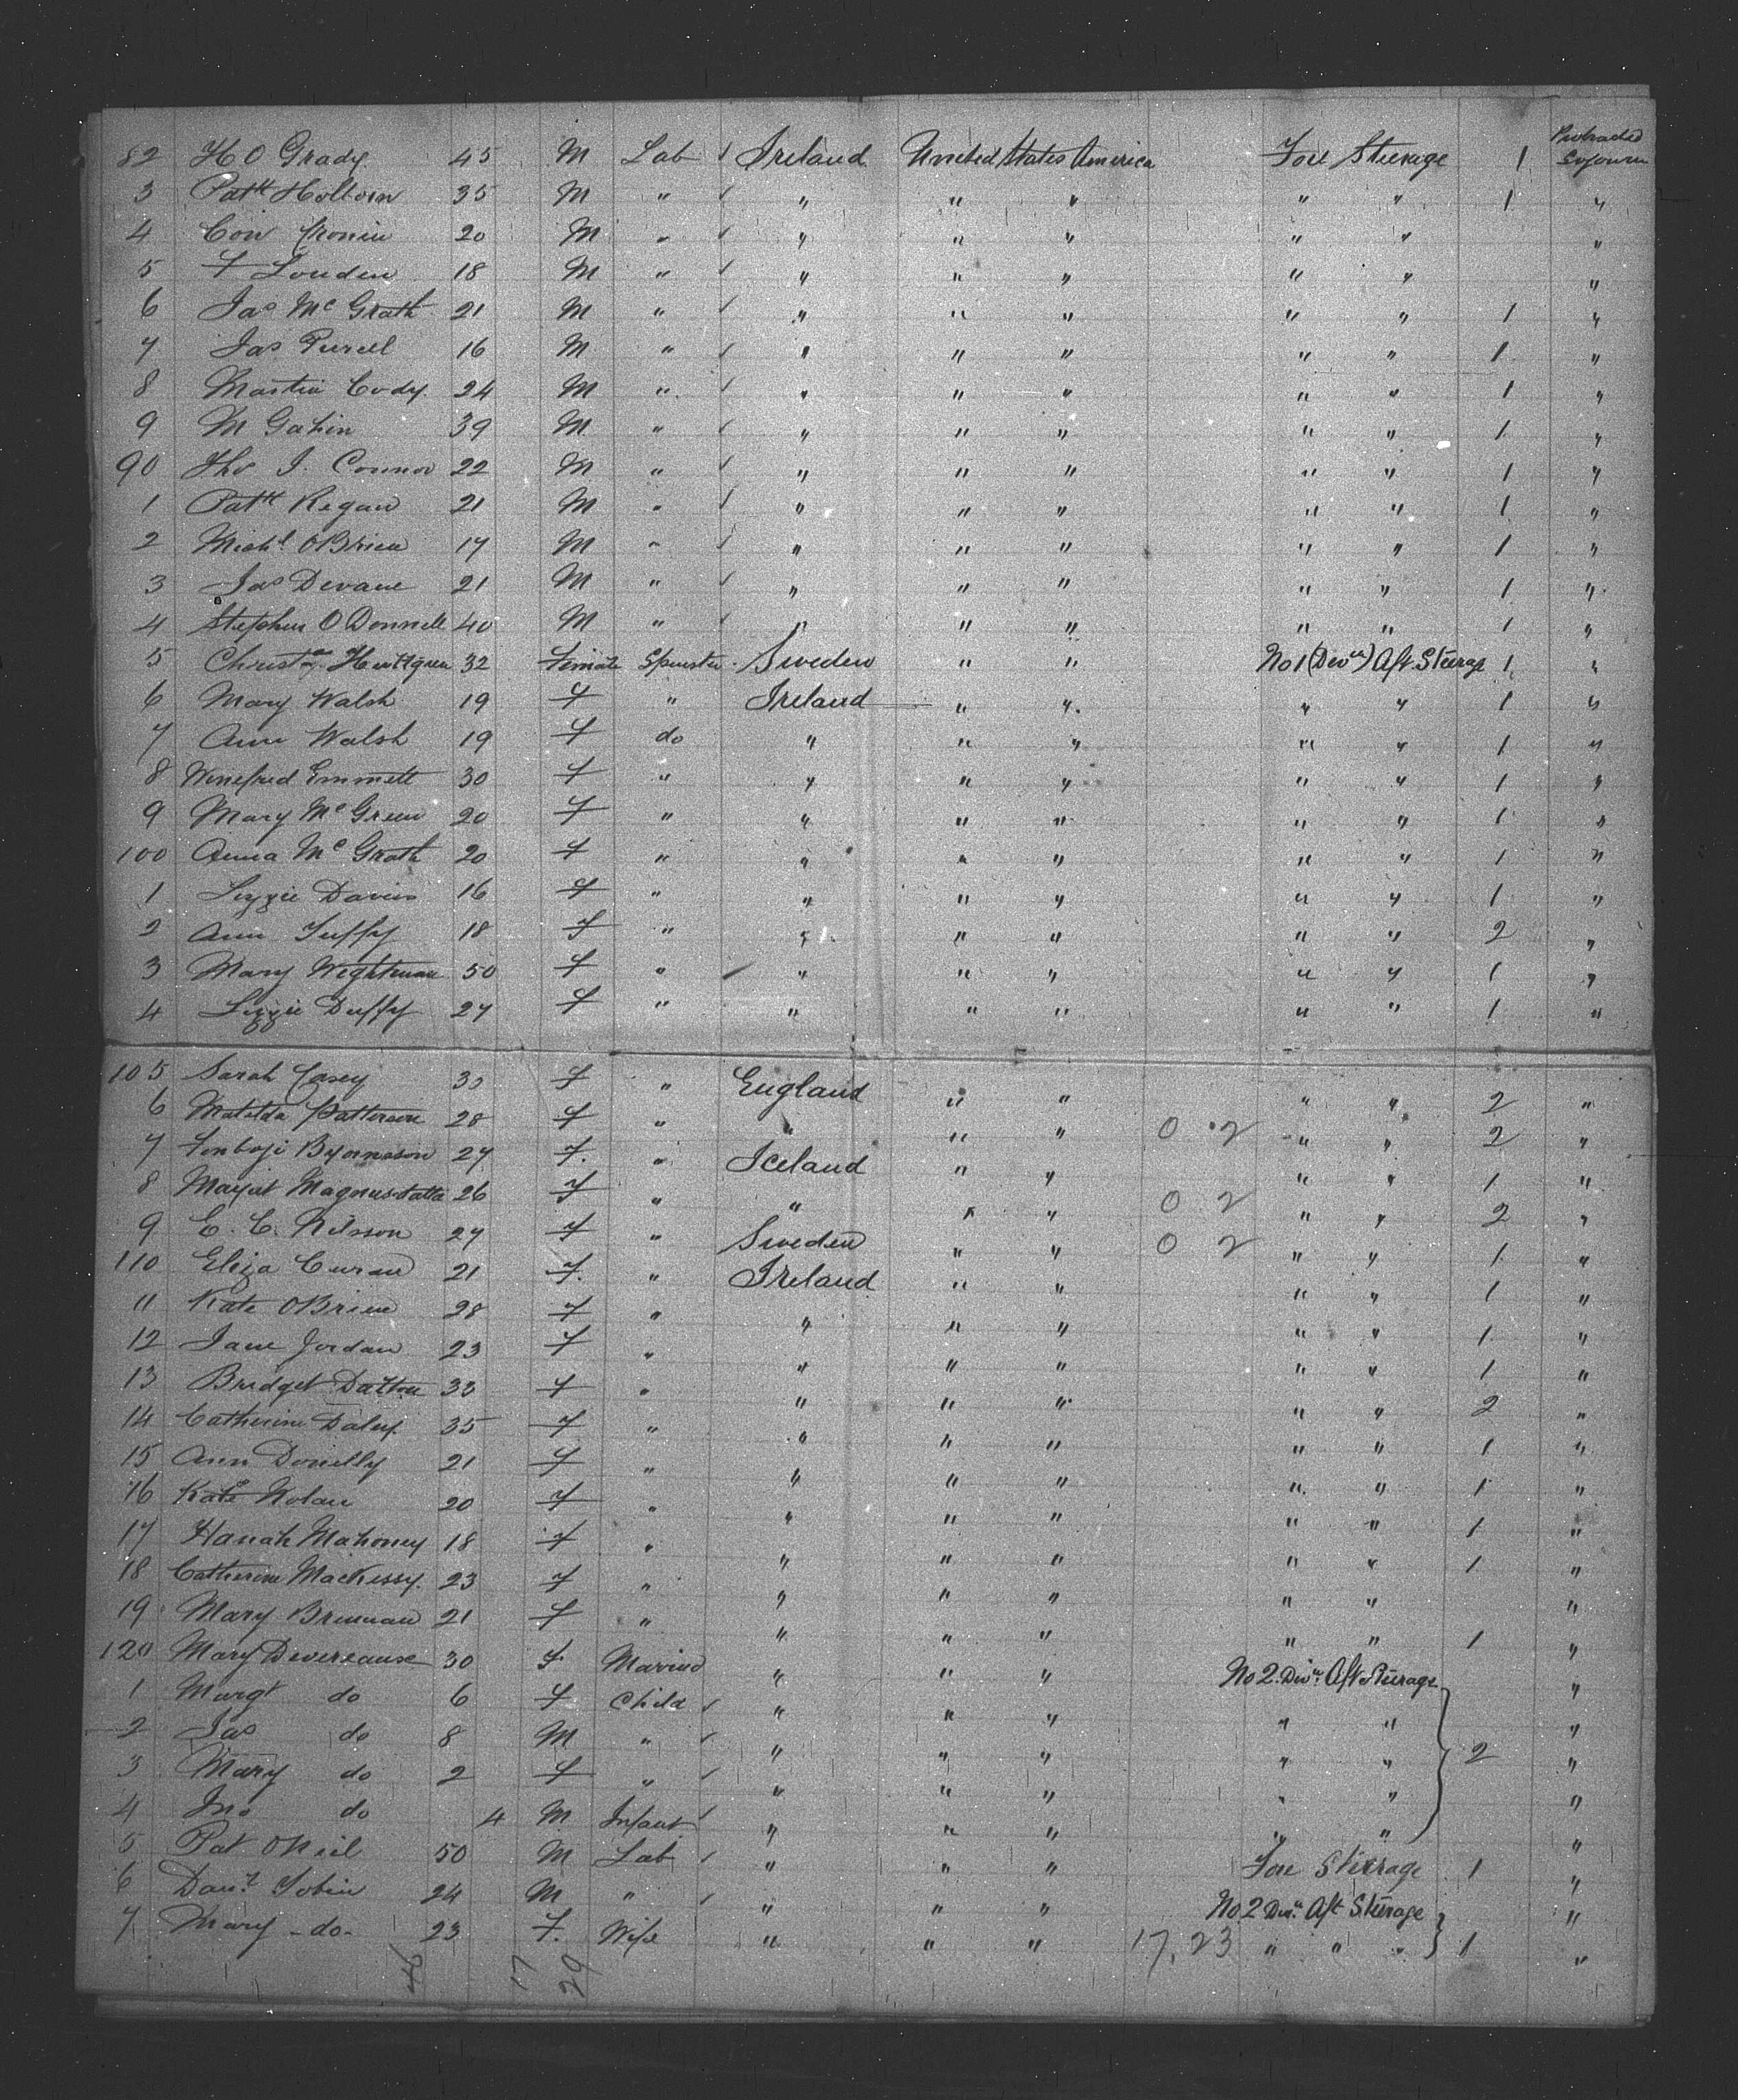 82 H O Grady 45 M Lab Ireland United States America Fore Steerage 1 Protracted Sojourn
3 Patk Holborn 35 M " " " " " " 1 "
4 Con Cronin 20 M " " " " " " "
5 F Louden 18 M " " " " " " "
6 Jas Mc Grath 21 M " " " " " " 1 "
7 Jas Purcell 16 M " " " " " " 1 "
8 Martin Cody 24 M " " " " " " 1 "
9 M Gahin 39 M " " " " " " 1 "
90 Tho J. Connor 22 M " " " " " " 1 "
1 Patk Regan 21 M " " " " " " 1 "
2 Michl OBrien 17 M " " " " " " 1 "
3 Jas Devane 21 M " " " " " " 1 "
4 Stephen O Donnell 40 M " " " " " " 1 "
5 32 Female Spinster Sweden " " No 1 (Divn) Aft. Steerage 1 "
6 Mary Walsh 19 F " Ireland " " " " 1 "
7 Ann Walsh 19 F do " " " " " 1 "
8 Winefred Emmett 30 F " " " " " " 1 "
9 Mary Mc Green 20 F " " " " " " 1 "
100 Anna Mc Grath 20 F " " " " " " 1 "
1 Lizzie Davies 16 F " " " " " " 1 "
2 Ann Tuffy 18 F " " " " " " 2 "
3 Mary Wightman 50 F " " " " " " 1 "
4 Lizzie Duffy 27 F " " " " " " 1 "
105 Sarah Casey F " England " " " " 2 "
6 Matilda Patterson 28 F " " " " 0 2 " " 2 "
7 Bjornason 27 F. " Iceland " " " " 1 "
8 26 F " " " " 0 2 " " 2 "
9 E. C. Nilsson 27 F " Sweden " " 0 2 " " 1 "
110 Eliza Curan 21 F. " Ireland " " " " 1 "
11 Kate OBrien 28 F " " " " " " 1 "
12 Jane Jordan 23 F " " " " " " 1 "
13 Bridget Dalton 33 F " " " " " " 2 "
14 Catherine Daley 35 F " " " " " " 1 "
15 Ann Donelly 21 F " " " " " " 1 "
16 Kate Nolan 20 F " " " " " " 1 "
17 Hanah Mahoney 18 F " " " " " " 1 "
18 Catherine MacKessy. 23 F " " " " " " "
19 Mary Brennan 21 F " " " " " " 1 "
120 Mary Devereause 30 F Married " " " No 2. Divn. Aft Steerage "
1 Margt do 6 F Child " " " " " "
2 Jas do 8 M " " " " " " 2 "
3 Mary do 2 F " " " " " " "
4 Jno do 4 M Infant " " " " " "
5 Pat ONeil 50 M Lab " " " Fore Steerage 1 "
6 Danl Tobin 24 M " " " " No. 2 Divn. Aft Steerage "
7 Mary -do- 23 F. Wife " " " 17, 23 " " " 1 "
17 29